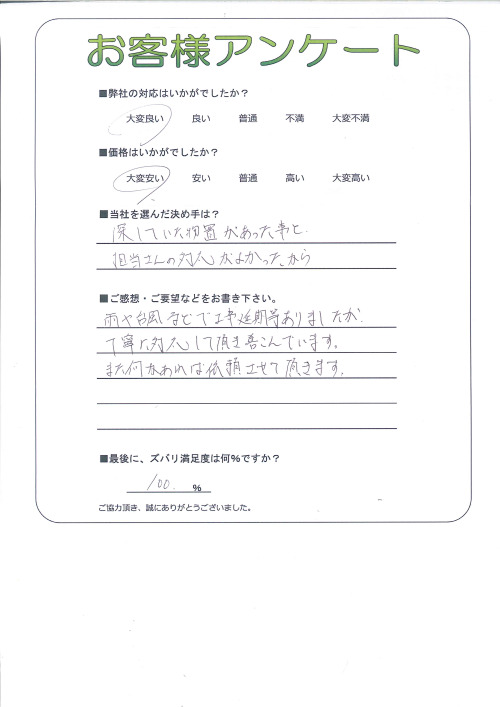 お客様アンケート
■弊社の対応はいかがでしたか？
大変良い 良い 普通 不満 大変不満
■価格はいかがでしたか？
大変安い 安い 普通 高い 大変高い
■当社を選んだ決め手は？
探していた物置があった事と、
担当さんの対応がよかったから
■ご感想・ご要望などをお書き下さい。
雨や台風などで工事延期等ありましたが、
丁寧に対応して頂き喜こんでいます。
また何かあれば依頼させて頂きます。
■最後に、ズバリ満足度は何%ですか？
100. %
ご協力頂き、誠にありがとうございました。